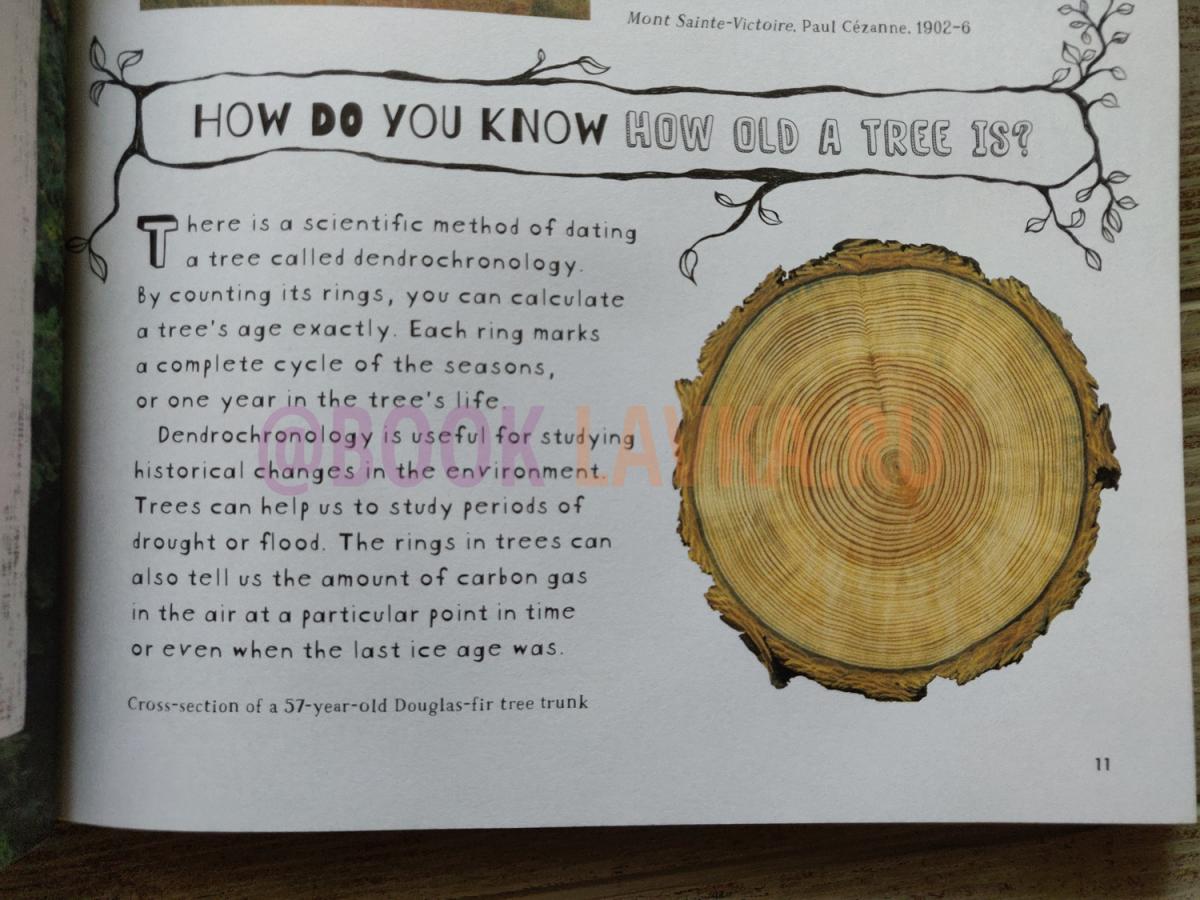 Mont Sainte-Victoire, Paul Cézanne, 1902-6
HOW DO YOU KNOW HOW OLD A TREE IS?
There is a scientific method of dating
a tree called dendrochronology.
By counting its rings, you can calculate
a tree's age exactly. Each ring marks
a complete cycle of the seasons,
or one year in the tree's life.
Dendrochronology is useful for studying
historical changes in the environment.
Trees can help us to study periods of
drought or flood. The rings in trees can
also tell us the amount of carbon gas
in the air at a particular point in time
or even when the last ice age was.
Cross-section of a 57-year-old Douglas-fir tree trunk
11
@BOOK LAVKA.RU